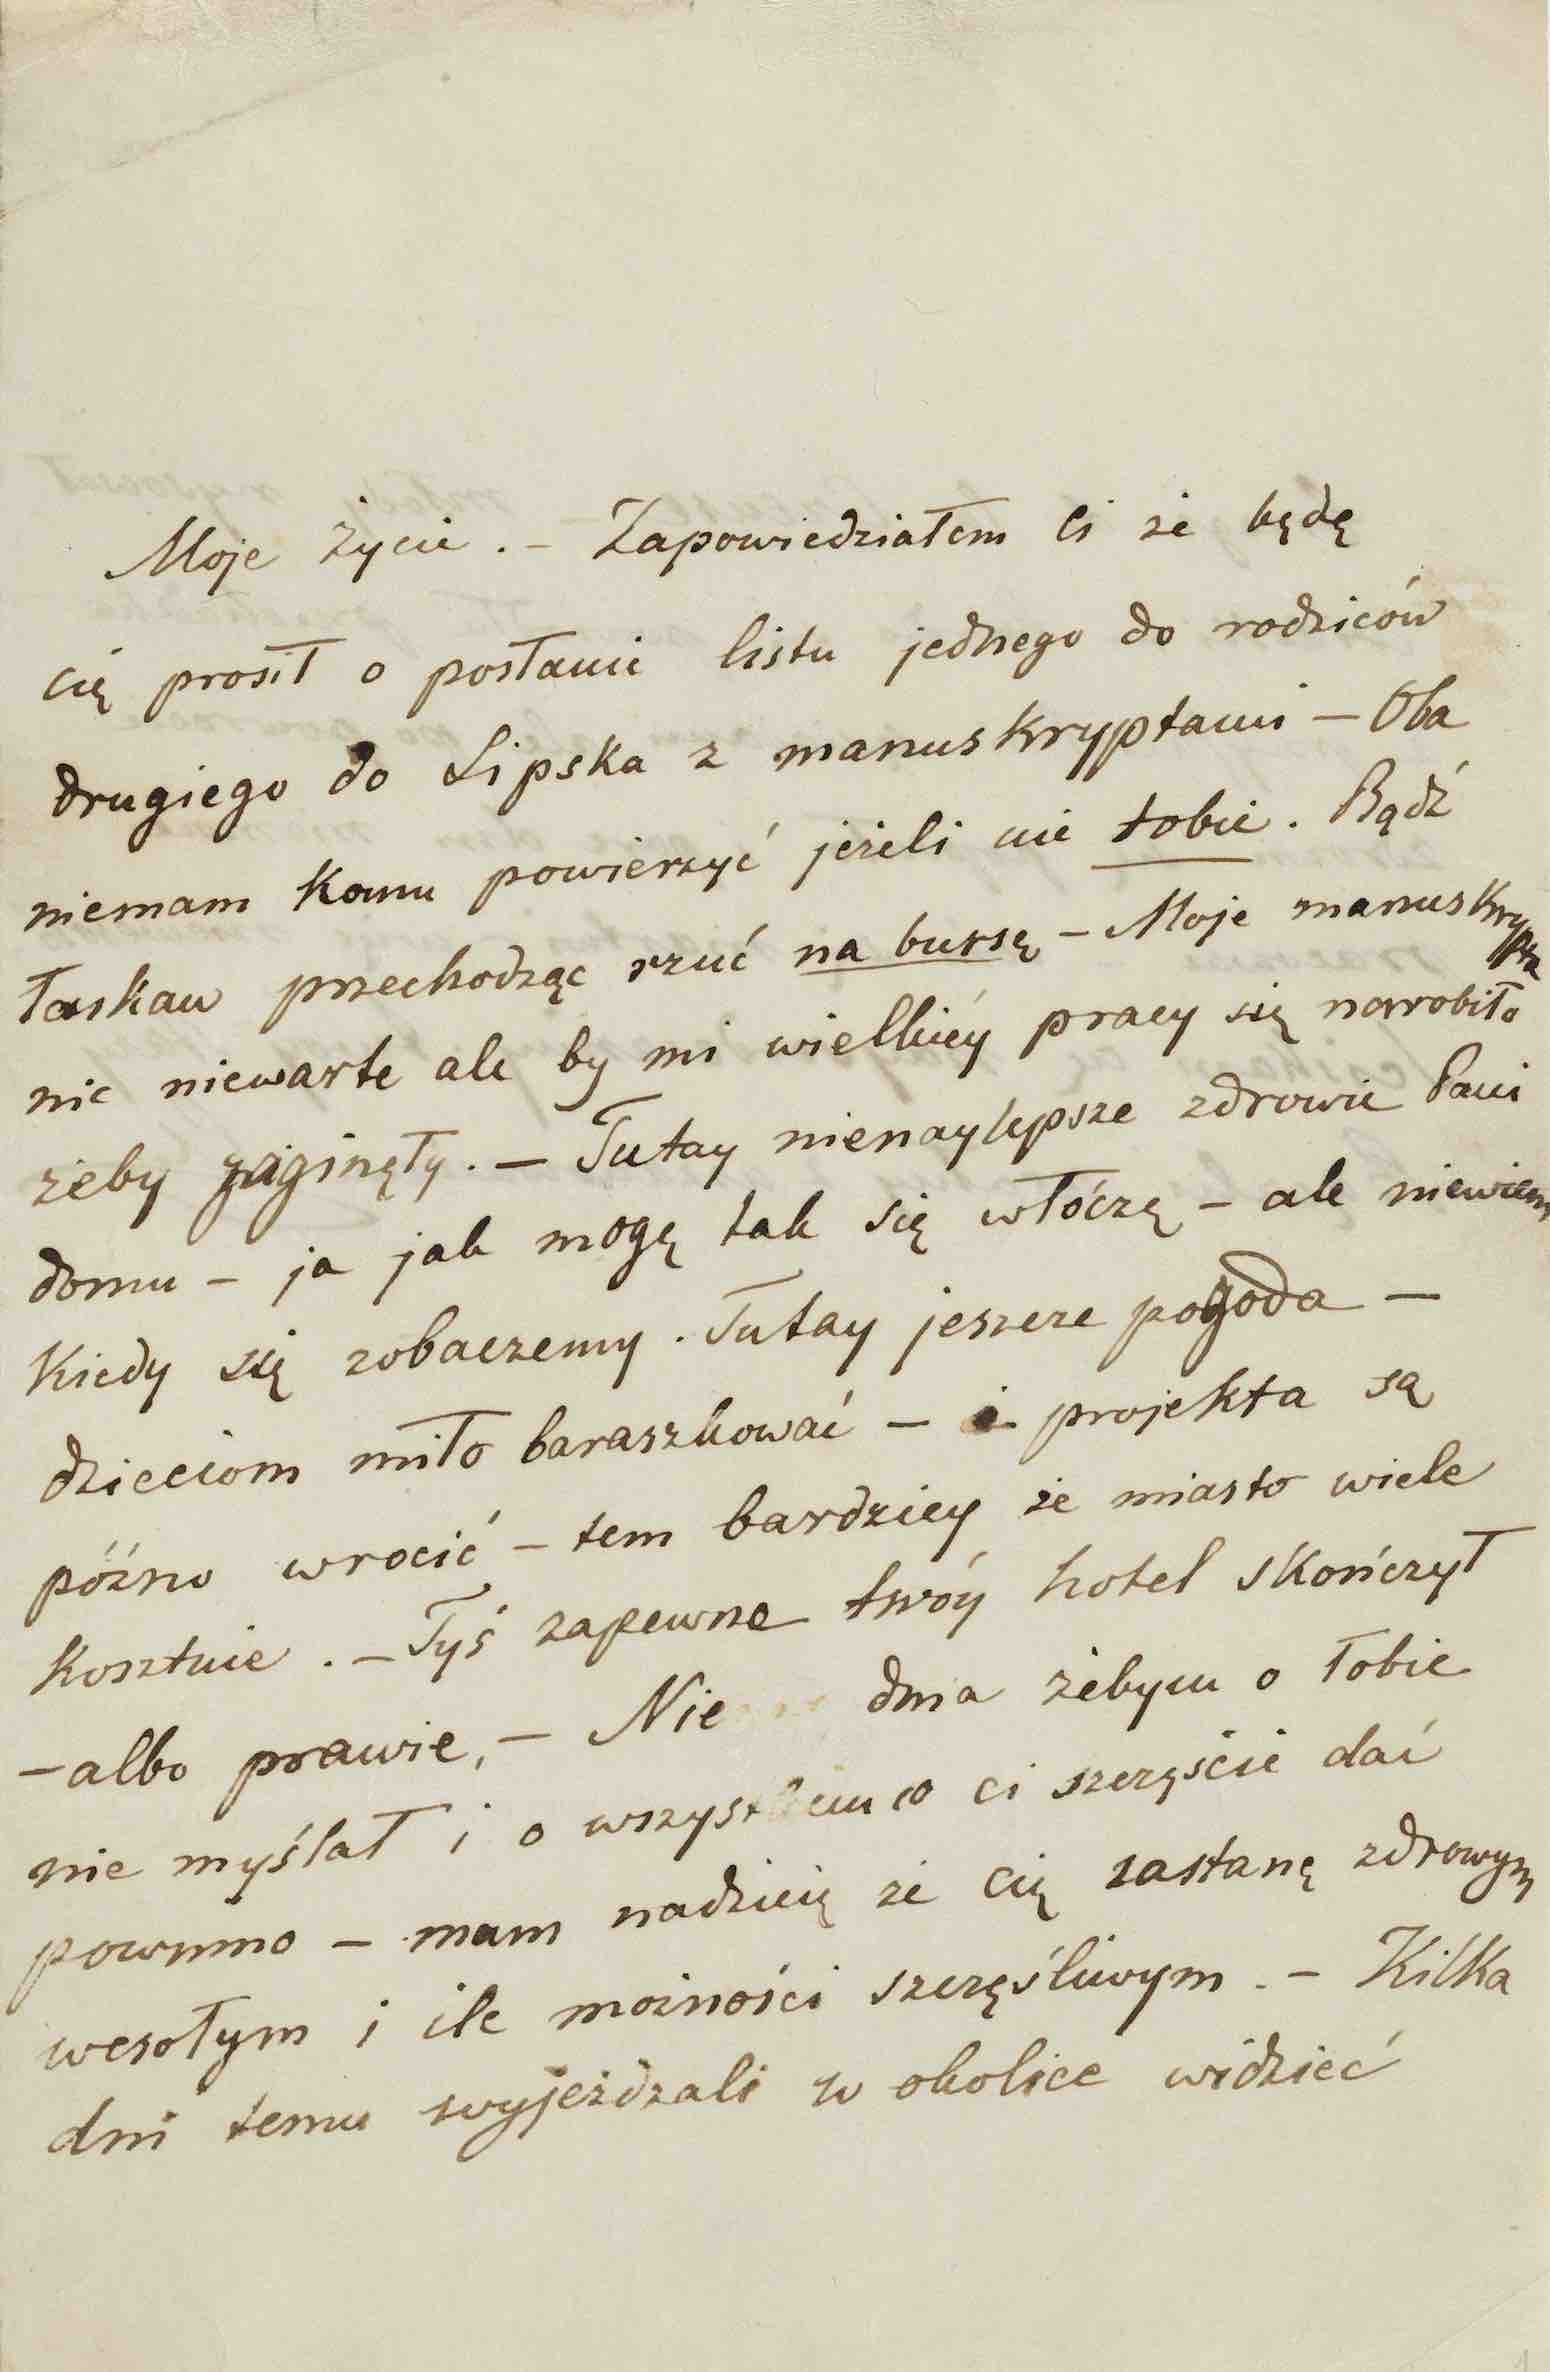 Moje życie. – Zapowiedziałem Ci że będę
cię prosił o posłanie listu jednego do rodziców
drugiego do Lipska z manuskryptami – Oba
niemam komu powierzyć jeżeli nie tobie. Bądź
łaskaw przechodząc rzuć na bursę – Moje manuskrypta
nic niewarte ale by mi wielkiéy pracy się narobiło
żeby zaginęły. – Tutay nienaylepsze zdrowie Pani
domu – ja jak mogę tak się włóczę – ale niewiem
kiedy się zobaczemy. Tutay jeszcze pogoda –
dzieciom miło baraszkować – i projekta są
późno wrocić – tem bardziey że miasto wiele
kosztuie. – Tyś zapewne twóy hotel skończył
– albo prawie, – Nie dnia żebym o Tobie
nie myślał i o wszystkiem co ci szczęście dać
powinno – mam nadzieię że cię zastanę zdrowym
wesołym i ile możności szczęśliwym. – Kilka
dni temu wyjeżdzali w okolice widzieć